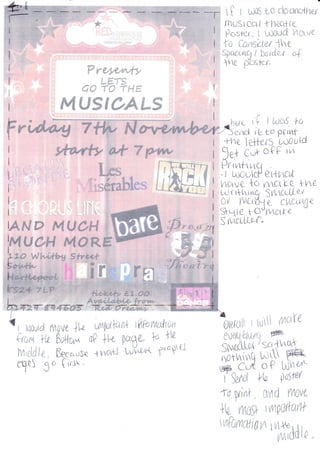 RED
Presents
LETS
GO TO THE
MUSICALS
Friday 7th November
starts at 7pm
Les
Misérables
WE WILL
ROCK
YOU
A CHORUS LINE
AND MUCH
MUCH MORE
bare
Dream
Theatre
110 Whitby Street
South
Hartlepool
TS24 7LP
hairspray
tickets £1.00
Available from
Red Dreams
01429 894605
if I was to do another
musical theatre
Poster. I would have
to Consider the
Spacing/border of
the poster.
here if I was to
Send it to print
the letters would
get cut off in
Printing
- I would either
have to make the
writing Smaller
or maybe change
Style to more
Smaller.
I would move the important information
from the bottom of the page to the
middle. Because thats where peoples
eyes go first.
Overall I will make
everything
Smaller so that
nothing will
Cut of when
I Send the poster
to print, and move
the most important
infomation into
middle.